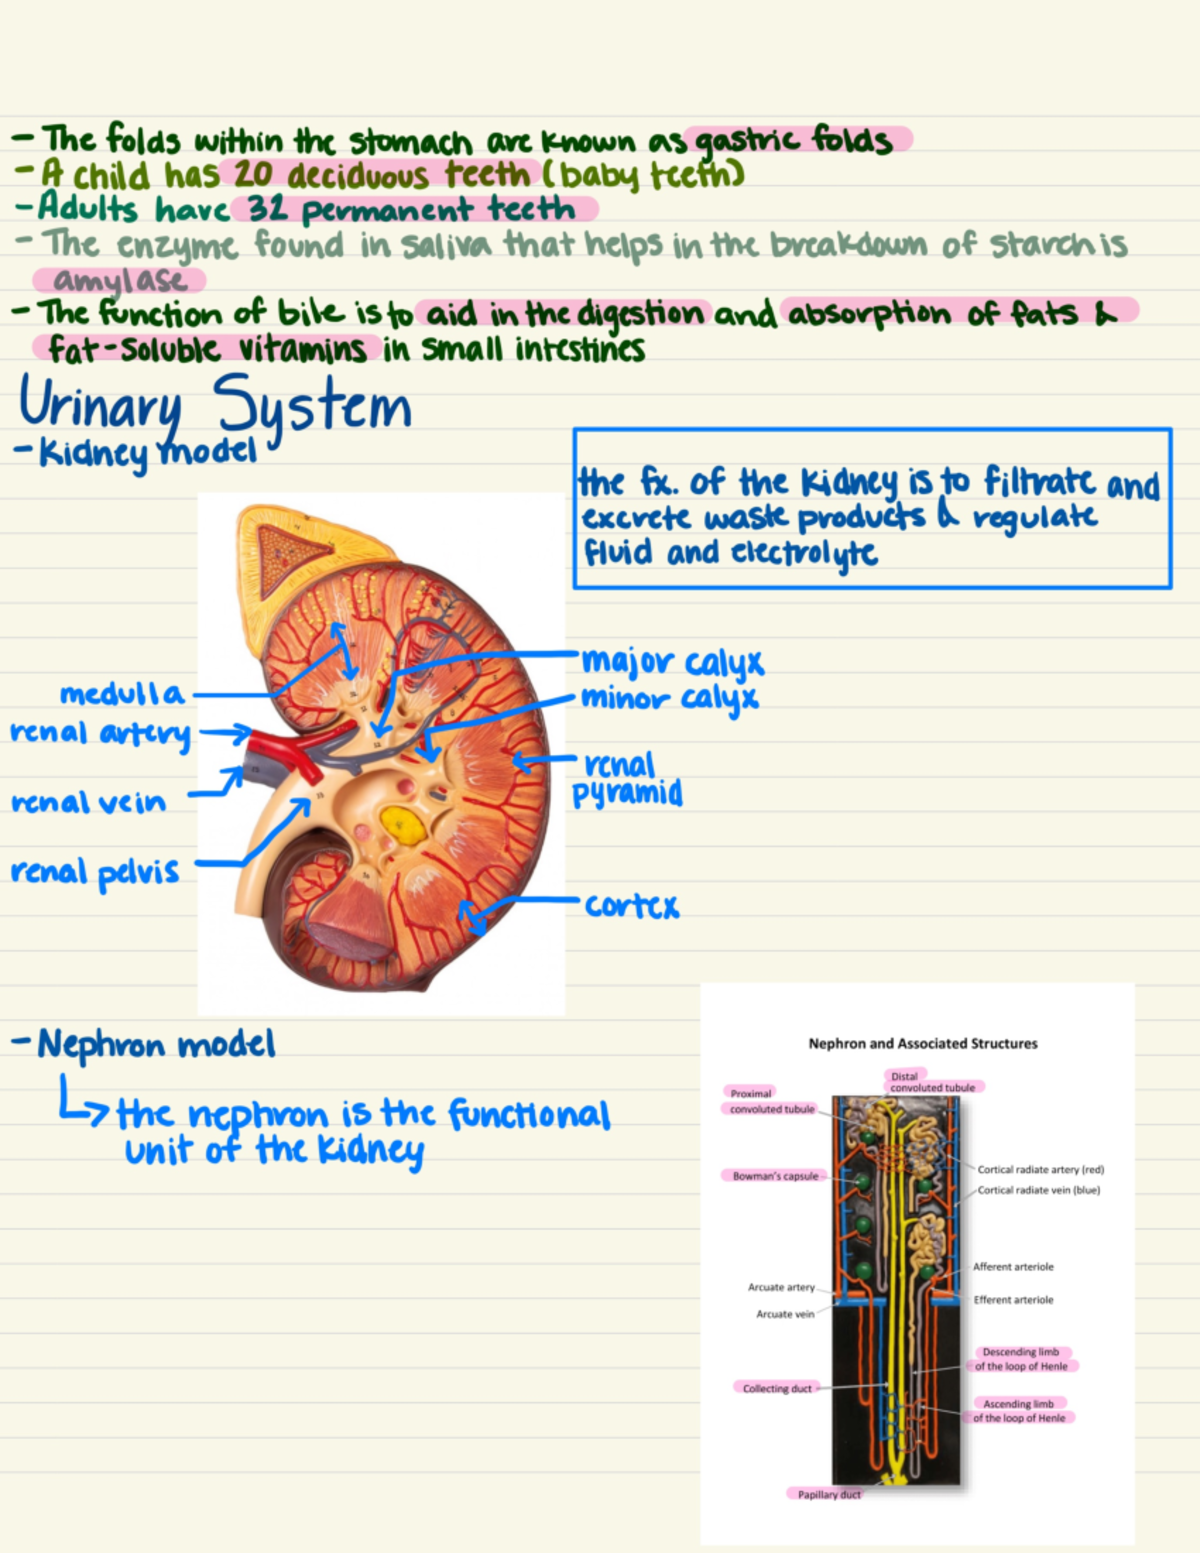 - The folds within the stomach are known as gastric folds
- A child has 20 deciduous teeth (baby teeth)
- Adults have 32 permanent teeth
- The enzyme found in saliva that helps in the breakdown of starch is
amylase
- The function of bile is to aid in the digestion and absorption of fats &
fat-soluble vitamins in small intestines
Urinary System
- Kidney model
the fx. of the kidney is to filtrate and
excrete waste products & regulate
fluid and electrolyte
medulla
renal artery
renal vein
renal pelvis
major calyx
minor calyx
renal
pyramid
cortex
- Nephron model
the nephron is the functional
unit of the kidney
Nephron and Associated Structures
Distal
convoluted tubule
Proximal
convoluted tubule
Bowman's capsule
Cortical radiate artery (red)
Cortical radiate vein (blue)
Afferent arteriole
Arcuate artery
Efferent arteriole
Arcuate vein
Descending limb
of the loop of Henle
Collecting duct
Ascending limb
of the loop of Henle
Papillary duct